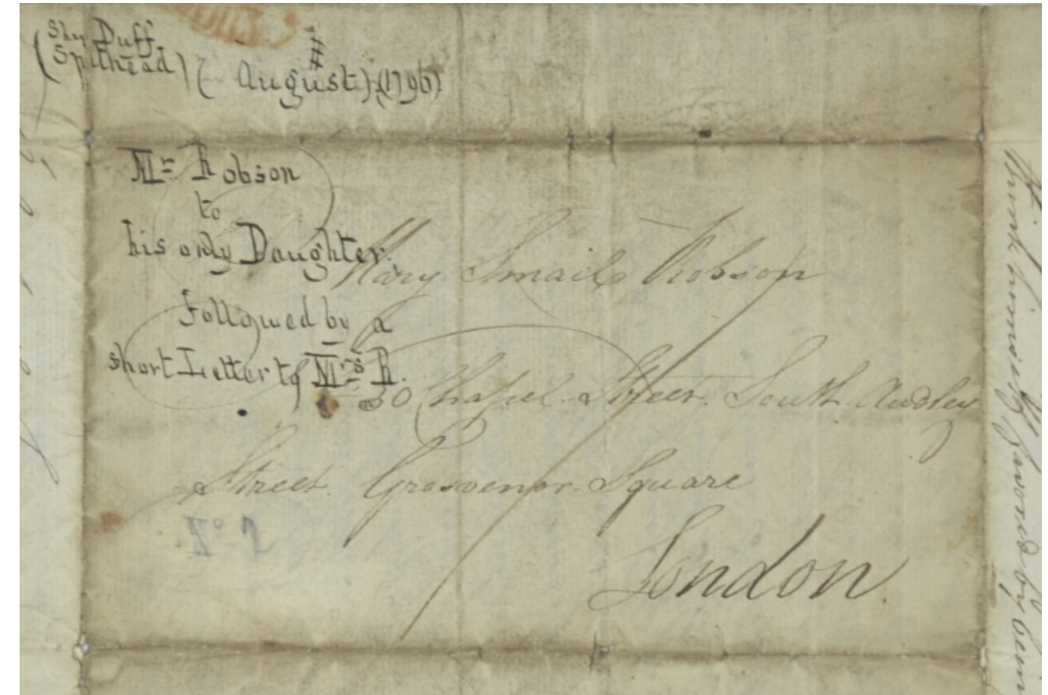 (Ship Duff
Spithead) (August) (1796)
Mr Robson
to
his only Daughter.
Followed by a
short Letter to Mrs R.
Mary Smails Robson
30 Chapel Street. South Audley
Street. Grosvenor. Square
London.
No 2
think himself favored by bein